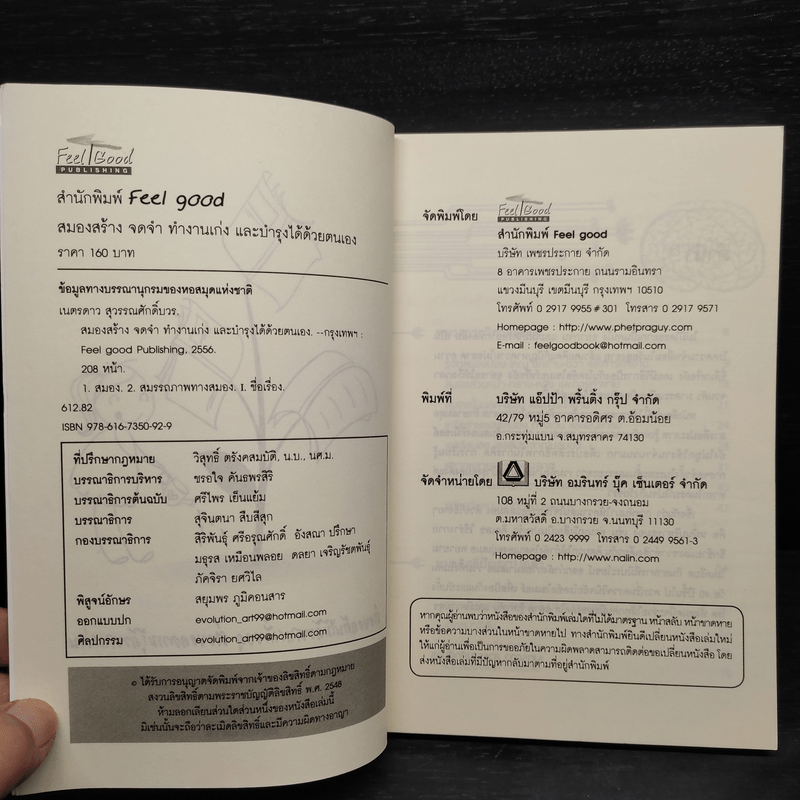 Feel Good
PUBLISHING
สำนักพิมพ์ Feel good
สมองสร้าง จดจำ ทำงานเก่ง และบำรุงได้ด้วยตนเอง
ราคา 160 บาท
ข้อมูลทางบรรณานุกรมของหอสมุดแห่งชาติ
เนตรดาว สุวรรณศักดิ์บวร.
สมองสร้าง จดจำ ทำงานเก่ง และบำรุงได้ด้วยตนเอง. --กรุงเทพฯ :
Feel good Publishing, 2556.
208 หน้า.
1. สมอง. 2. สมรรถภาพทางสมอง. I. ชื่อเรื่อง.
612.82
ISBN 978-616-7350-92-9
ที่ปรึกษากฎหมาย วิสุทธิ์ ตรังคสมบัติ, น.บ., นศ.ม.
บรรณาธิการบริหาร ชรอใจ คันธพรสิริ
บรรณาธิการต้นฉบับ ศรีไพร เย็นแย้ม
บรรณาธิการ สุจินตนา สืบสีสุก
กองบรรณาธิการ สิริพันธุ์ ศรีอรุณศักดิ์ อังสณา ปรึกษา
มธุรส เหมือนพลอย ดลยา เจริญรัชตพันธุ์
ภัคจิรา ยศวิไล
พิสูจน์อักษร สยุมพร ภูมิคอนสาร
ออกแบบปก evolution_art99@hotmail.com
ศิลปกรรม evolution_art99@hotmail.com
© ได้รับการอนุญาตจัดพิมพ์จากเจ้าของลิขสิทธิ์ตามกฎหมาย
สงวนลิขสิทธิ์ตามพระราชบัญญัติลิขสิทธิ์ พ.ศ. 2548
ห้ามลอกเลียนส่วนใดส่วนหนึ่งของหนังสือเล่มนี้
มิเช่นนั้นจะถือว่าละเมิดลิขสิทธิ์และมีความผิดทางอาญา
จัดพิมพ์โดย Feel Good
PUBLISHING
สำนักพิมพ์ Feel good
บริษัท เพชรประกาย จำกัด
8 อาคารเพชรประกาย ถนนรามอินทรา
แขวงมีนบุรี เขตมีนบุรี กรุงเทพฯ 10510
โทรศัพท์ 0 2917 9955 # 301 โทรสาร 0 2917 9571
Homepage : http://www.phetpraguy.com
E-mail : feelgoodbook@hotmail.com
พิมพ์ที่ บริษัท แอ๊ปป้า พริ้นติ้ง กรุ๊ป จำกัด
42/79 หมู่5 อาคารอดิศร ต.อ้อมน้อย
อ.กระทุ่มแบน จ.สมุทรสาคร 74130
จัดจำหน่ายโดย บริษัท อมรินทร์ บุ๊ค เซ็นเตอร์ จำกัด
108 หมู่ที่ 2 ถนนบางกรวย-จงถนอม
ต.มหาสวัสดิ์ อ.บางกรวย จ.นนทบุรี 11130
โทรศัพท์ 0 2423 9999 โทรสาร 0 2449 9561-3
Homepage : http://www.naiin.com
หากคุณผู้อ่านพบว่าหนังสือของสำนักพิมพ์เล่มใดที่ไม่ได้มาตรฐาน หน้าสลับ หน้าขาดหาย
หรือข้อความบางส่วนในหน้าขาดหายไป ทางสำนักพิมพ์ยินดีเปลี่ยนหนังสือเล่มใหม่
ให้แก่ผู้อ่านเพื่อเป็นการขออภัยในความผิดพลาดสามารถติดต่อขอเปลี่ยนหนังสือ โดย
ส่งหนังสือเล่มที่มีปัญหากลับมาตามที่อยู่สำนักพิมพ์